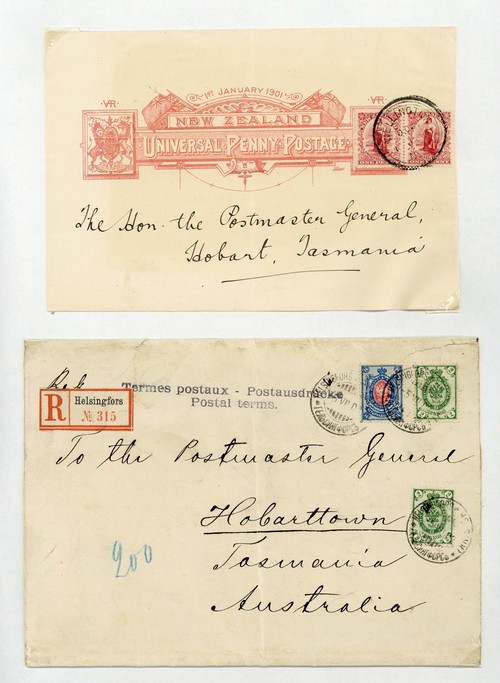 1ST JANUARY 1901
V·R V·R
NEW ZEALAND
UNIVERSAL PENNY POSTAGE
The Hon. the Postmaster General,
Hobart, Tasmania
Termes postaux - Postausdrücke
Postal terms.
R Helsingfors
№ 315
To the Postmaster General
Hobarttown
Tasmania
Australia
200